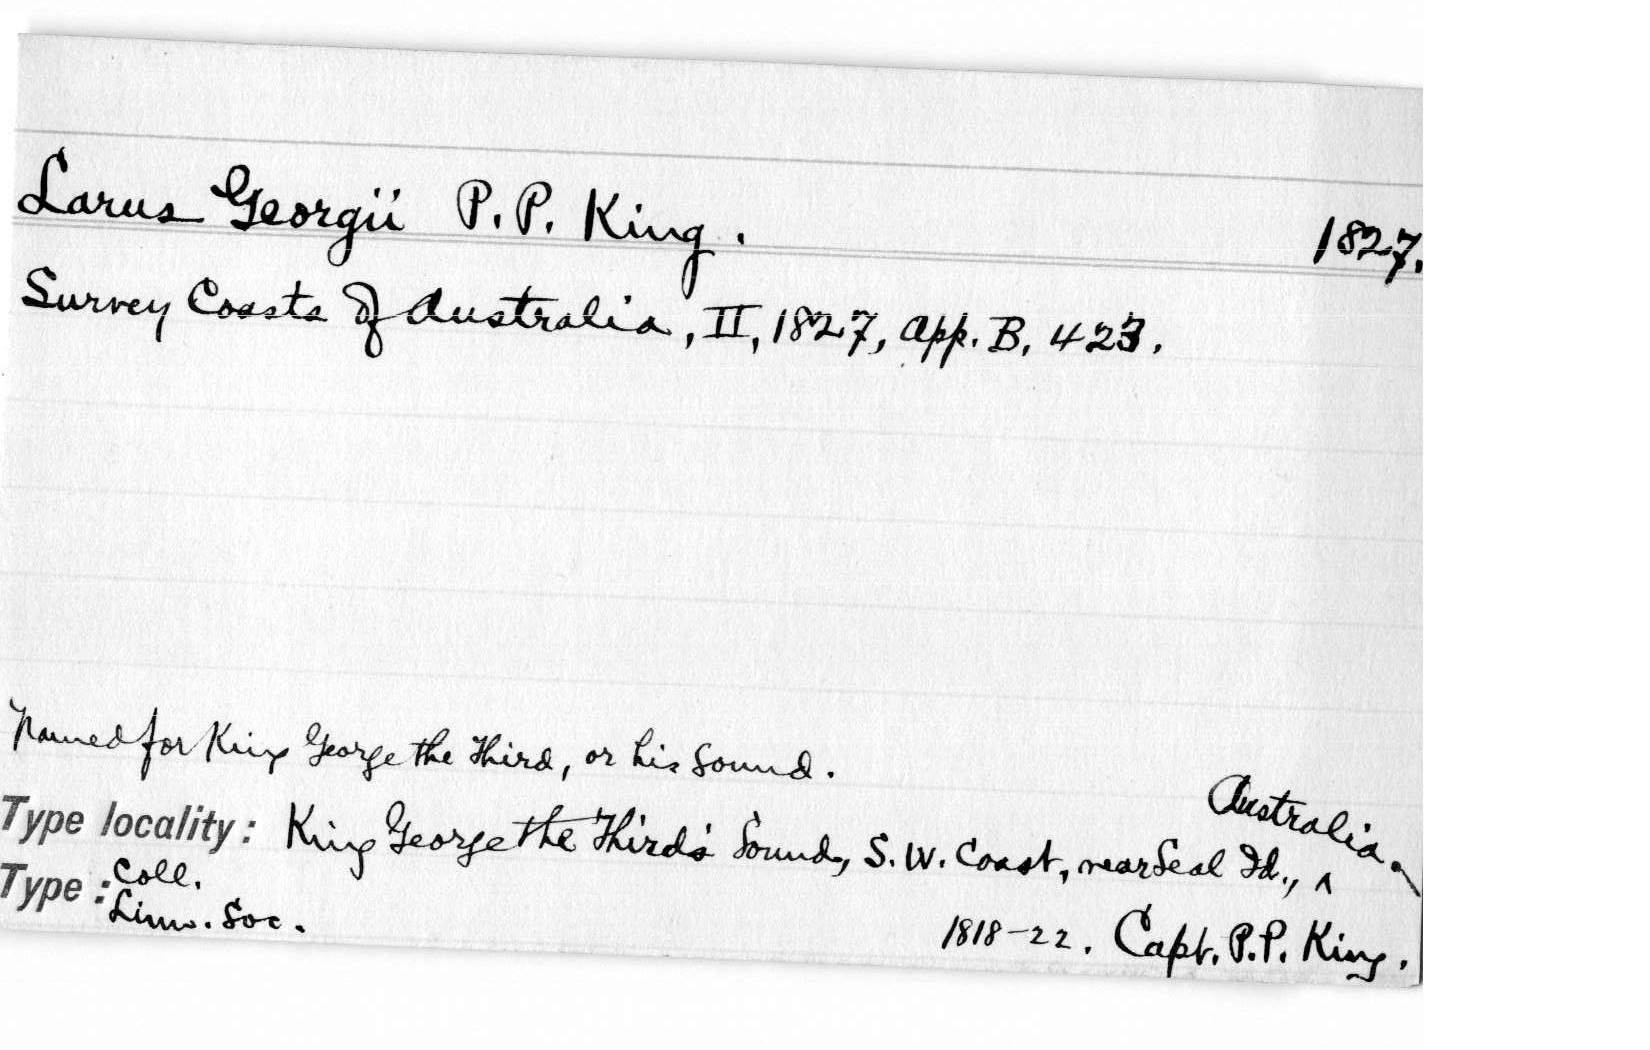 Larus Georgii P. P. King. 1827.
Survey Coasts of Australia, II, 1827, App. B, 423.
Named for King George the Third, or his Sound.
Type locality: King George the Third's Sound, S. W. Coast, near Seal Id., ^ Australia.
Type: Coll. Linn. Soc. 1818-22. Capt. P. P. King.